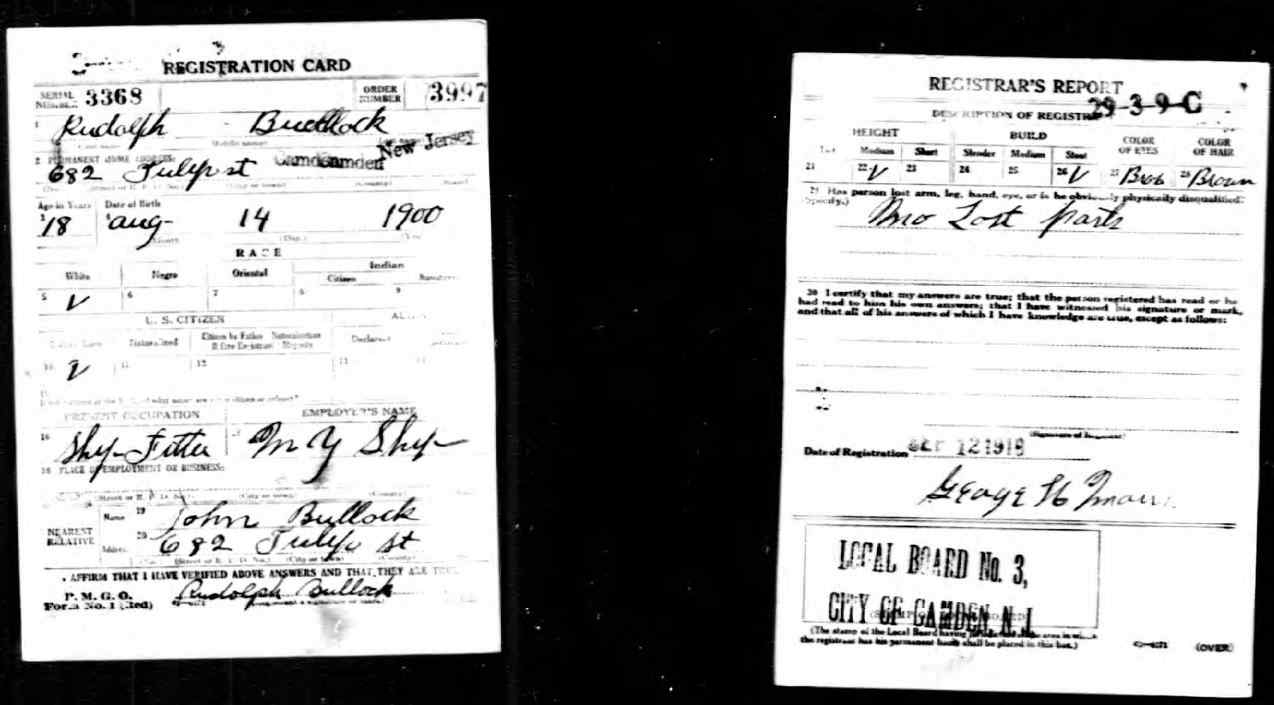 REGISTRATION CARD
SERIAL NUMBER 3368
ORDER NUMBER 3997
1 Rudolph Bullock
2 PERMANENT HOME ADDRESS:
682 Tulip st Camden Camden New Jersey
Age in Years Date of Birth
18 Aug- 14 1900
(Day.)
RACE
White Negro Oriental Indian
Citizen
5 V 6 7 8 9
U. S. CITIZEN
Naturalized Citizen by Father's Naturalization Declarant
10 V 11 12 13
PRESENT OCCUPATION EMPLOYER'S NAME
16 Ship-Fitter N Y Ship
18 PLACE OF EMPLOYMENT OR BUSINESS:
(Street or R. F. D. No.) (City or town) (County)
NEAREST RELATIVE
Name 19 John Bullock
Address 20 682 Tulip st
(Street or R. F. D. No.) (City or town) (County)
I AFFIRM THAT I HAVE VERIFIED ABOVE ANSWERS AND THAT THEY ARE TRUE
P. M. G. O.
Form No. 1 (Red)
Rudolph Bullock
REGISTRAR'S REPORT
29-3-9-C
DESCRIPTION OF REGISTRANT
HEIGHT BUILD COLOR OF EYES COLOR OF HAIR
Medium Short Slender Medium Stout
21 22 V 23 24 25 26 V 27 28 Brown
29 Has person lost arm, leg, hand, eye, or is he obviously physically disqualified?
(Specify.)
no Lost parts
30 I certify that my answers are true; that the person registered has read or has
had read to him his own answers; that I have witnessed his signature or mark,
and that all of his answers of which I have knowledge are true, except as follows:
(Signature of Registrar)
Date of Registration SEP 12 1918
George H
LOCAL BOARD No. 3,
CITY OF CAMDEN N. J
(The stamp of the Local Board having jurisdiction of the area in which
the registrant has his permanent home shall be placed in this box.)
(OVER)